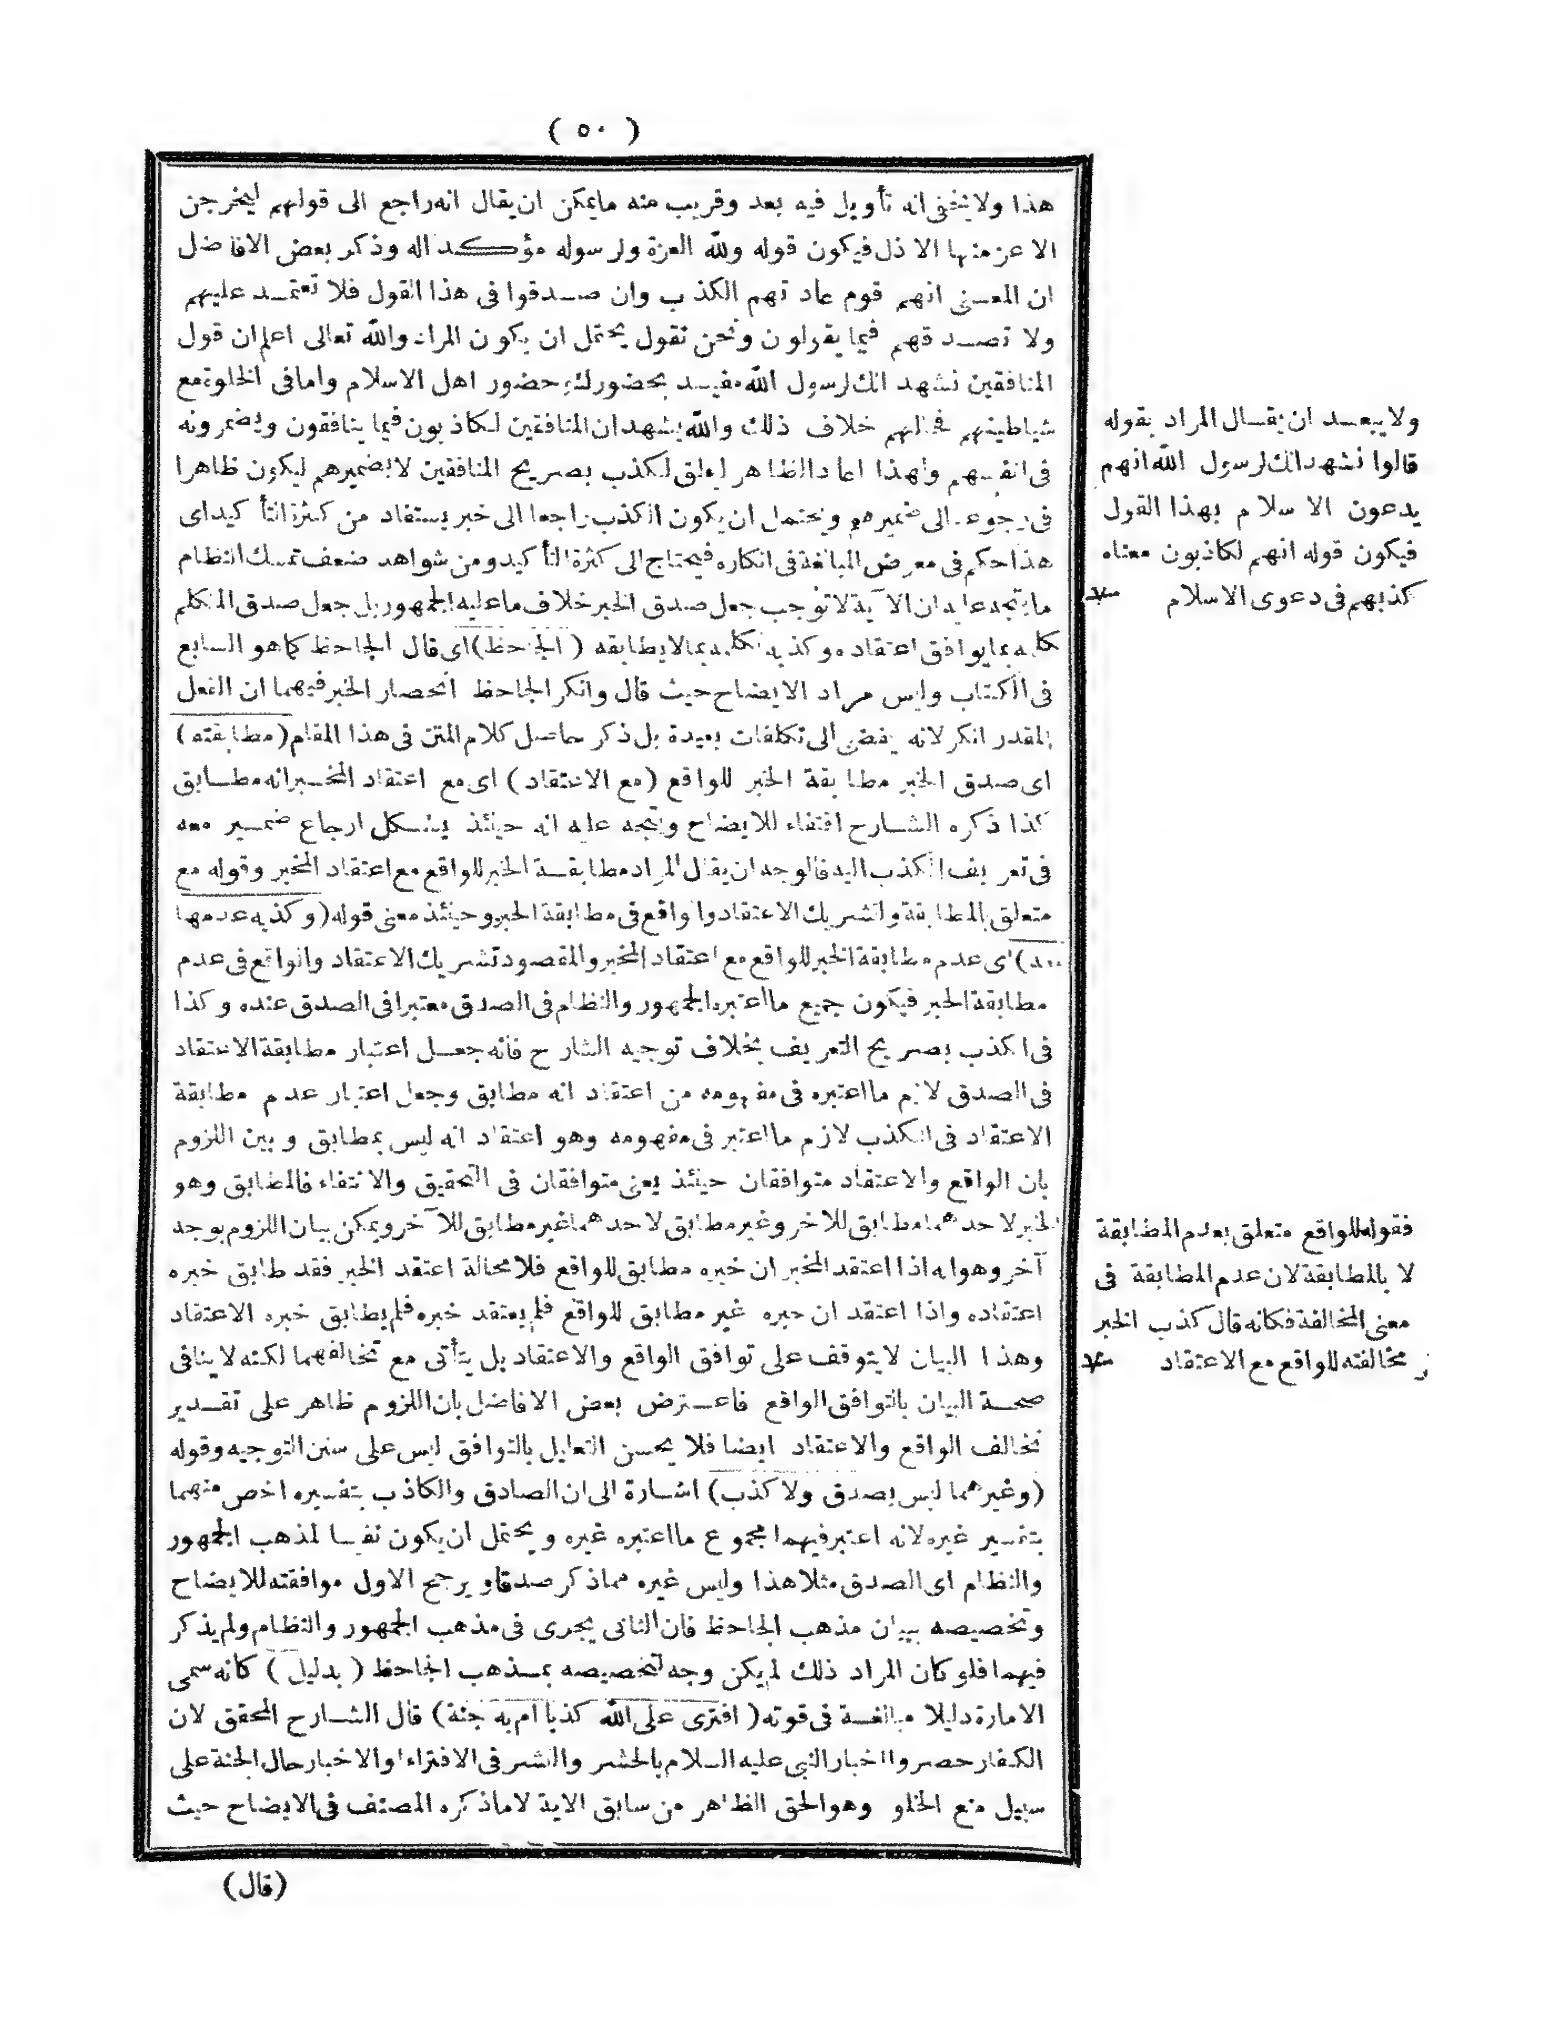 ( ٥٠ )
هذا ولا يخفى انه تأويل فيه بعد وقريب منه مايمكن ان يقال انه راجع الى قولهم ليخرجن
الاعز منها الاذل فيكون قوله ولله العزة ولرسوله مؤكدا له وذكر بعض الافاضل
ان المعنى انهم قوم عادتهم الكذب وان صدقوا فى هذا القول فلا تعتمد عليهم
ولا تصدقهم فيما يقولون ونحن نقول يحتمل ان يكون المراد والله تعالى اعلم ان قول
المنافقين نشهد انك لرسول الله مقيد بحضورك وحضور اهل الاسلام واما فى الخلوة مع
شياطينهم فحالهم خلاف ذلك والله يشهد ان المنافقين لكاذبون فيما ينافقون ويضمرونه
فى انفسهم ولهذا اعاد الظاهر ليعلق الكذب بصريح المنافقين لا بضميرهم ليكون ظاهرا
فى رجوعه الى ضميرهم ويحتمل ان يكون الكذب راجعا الى خبر يستفاد من كثرة التأكيد اى
هذا حكم فى معرض المبالغة فى انكاره فيحتاج الى كثرة التأكيد ومن شواهد ضعف تمسك النظام
ما يتجه عليه ان الآية لا توجب جعل صدق الخبر خلاف ما عليه الجمهور بل جعل صدق المتكلم
تكلمه بما يوافق اعتقاده وكذبه تكلمه بما لا يطابقه ( الجاحظ ) اى قال الجاحظ كما هو السابع
فى الكتاب وليس مراد الايضاح حيث قال وانكر الجاحظ انحصار الخبر فيهما ان الفعل
المقدر انكر لانه يفضى الى تكلفات بعيدة بل ذكر حاصل كلام المتن فى هذا المقام ( مطابقته )
اى صدق الخبر مطابقة الخبر للواقع ( مع الاعتقاد ) اى مع اعتقاد المخبر انه مطابق
كذا ذكره الشارح اقتفاء للايضاح ويتجه عليه انه حينئذ يشكل ارجاع ضمير معه
فى تعريف الكذب اليه فالوجه ان يقال المراد مطابقة الخبر للواقع مع اعتقاد المخبر وقوله مع
متعلق بالمطابقة ولتشريك الاعتقاد والواقع فى مطابقة الخبر وحينئذ معنى قوله ( وكذبه عدمها
معه ) اى عدم مطابقة الخبر للواقع مع اعتقاد المخبر والمقصود تشريك الاعتقاد والواقع فى عدم
مطابقة الخبر فيكون جميع ما اعتبره الجمهور والنظام فى الصدق معتبرا فى الصدق عنده وكذا
فى الكذب بصريح التعريف بخلاف توجيه الشارح فانه جعل اعتبار مطابقة الاعتقاد
فى الصدق لازم ما اعتبره فى مفهومه من اعتقاد انه مطابق وجعل اعتبار عدم مطابقة
الاعتقاد فى الكذب لازم ما اعتبر فى مفهومه وهو اعتقاد انه ليس بمطابق وبين اللزوم
بان الواقع والاعتقاد متوافقان حينئذ يعنى متوافقان فى التحقيق والانتفاء فالمطابق وهو
الخبر لاحدهما مطابق للاخر وغير مطابق لاحدهما غير مطابق للآخر ويمكن بيان اللزوم بوجه
آخر وهو انه اذا اعتقد المخبر ان خبره مطابق للواقع فلا محالة اعتقد الخبر فقد طابق خبره
اعتقاده واذا اعتقد ان خبره غير مطابق للواقع فلم يعتقد خبره فلم يطابق خبره الاعتقاد
وهذا البيان لا يتوقف على توافق الواقع والاعتقاد بل يتأتى مع تخالفهما لكنه لا ينافى
صحة البيان بالتوافق الواقع فاعترض بعض الافاضل بان اللزوم ظاهر على تقدير
تخالف الواقع والاعتقاد ايضا فلا يحسن التعليل بالتوافق ليس على سنن التوجيه وقوله
( وغيرهما ليس بصدق ولا كذب ) اشارة الى ان الصادق والكاذب بتفسيره اخص منهما
بتفسير غيره لانه اعتبر فيهما مجموع ما اعتبره غيره ويحتمل ان يكون نفيا لمذهب الجمهور
والنظام اى الصدق مثلا هذا وليس غيره مما ذكر صدقا ويرجح الاول موافقته للايضاح
وتخصيصه ببيان مذهب الجاحظ فان الثانى يجرى فى مذهب الجمهور والنظام ولم يذكر
فيهما فلو كان المراد ذلك لم يكن وجه لتخصيصه بمذهب الجاحظ ( بدليل ) كانه سمى
الامارة دليلا مبالغة فى قوته ( افترى على الله كذبا ام به جنة ) قال الشارح المحقق لان
الكفار حصروا اخبار النبى عليه السلام بالحشر والنشر فى الافتراء والاخبار حال الجنة على
سبيل منع الخلو وهو الحق الظاهر من سابق الاية لا ما ذكره المصنف فى الايضاح حيث
( قال )
ولا يبعد ان يقال المراد بقوله
قالوا نشهد انك لرسول الله انهم
يدعون الاسلام بهذا القول
فيكون قوله انهم لكاذبون معناه
كذبهم فى دعوى الاسلام
فقوله للواقع متعلق بعدم المطابقة
لا بالمطابقة لان عدم المطابقة فى
معنى المخالفة فكانه قال كذب الخبر
مخالفته للواقع مع الاعتقاد